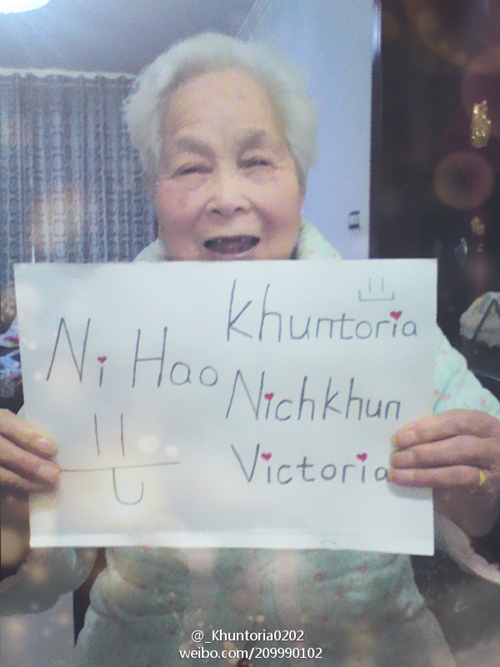 Ni Hao
Khuntoria
Nichkhun
Victoria
@_Khuntoria0202
weibo.com/209990102